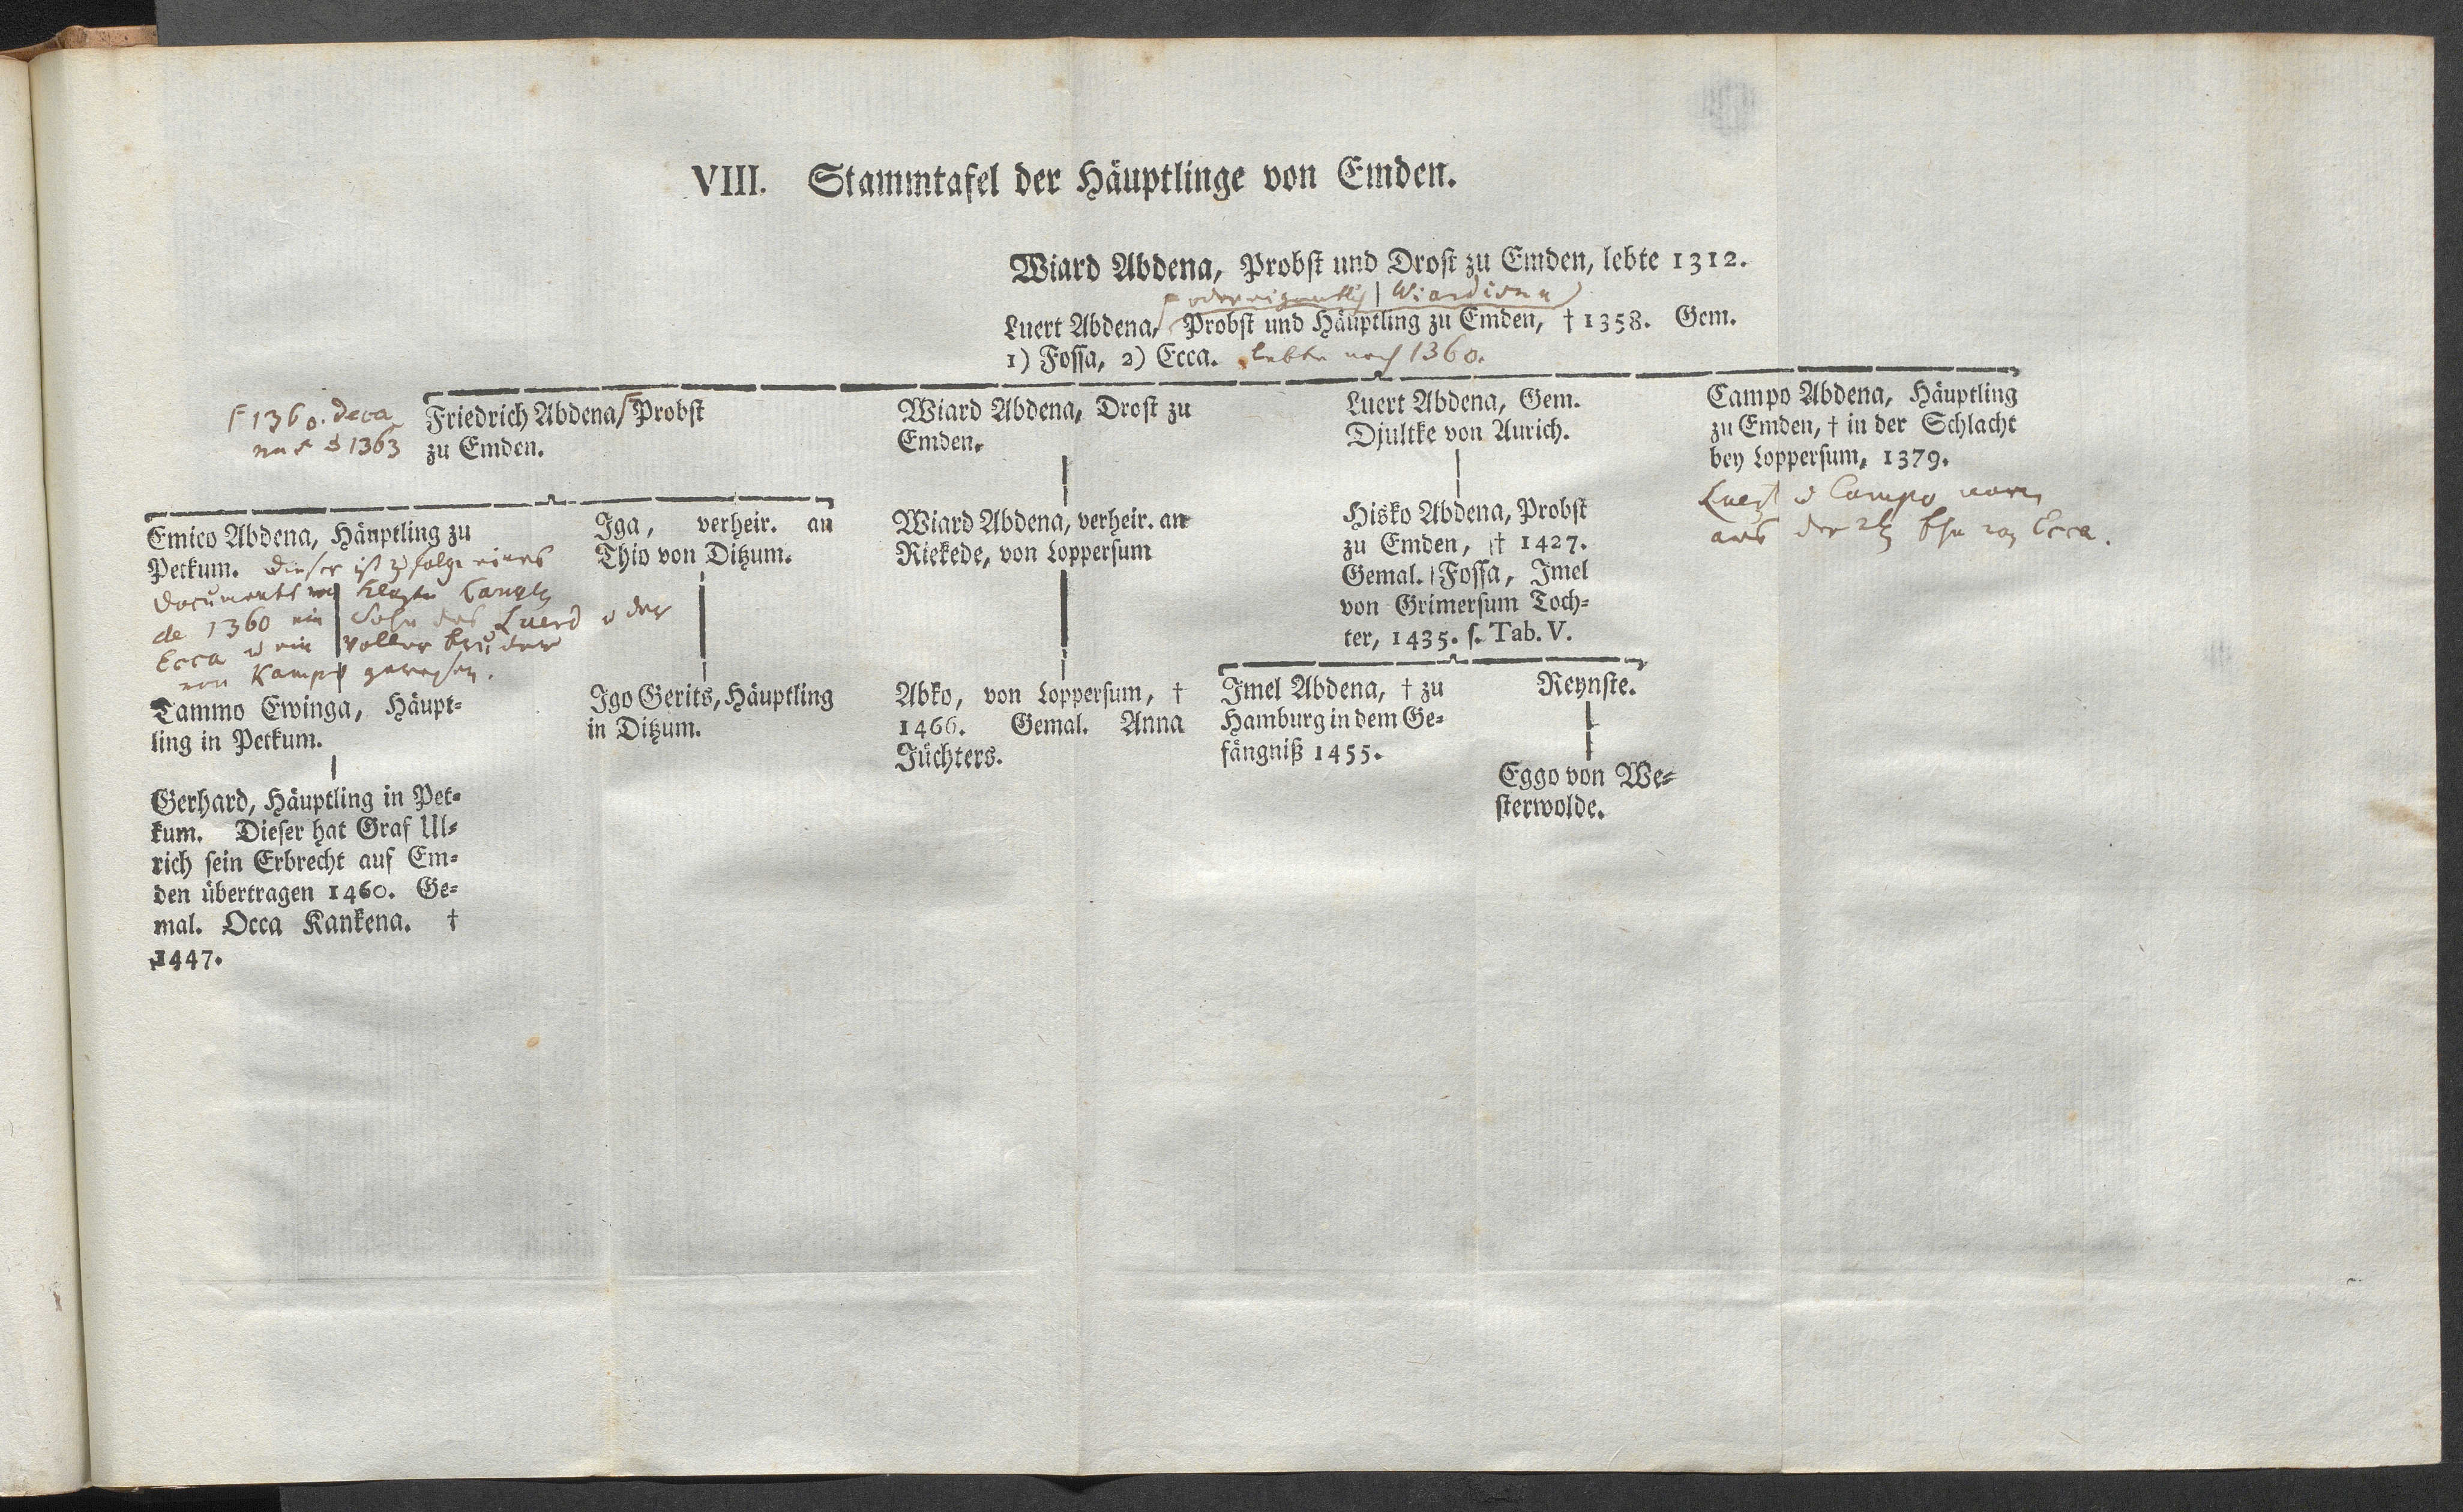 VIII. Stammtafel der Häuptlinge von Emden.
Wiard Abdena, Probst und Drost zu Emden, lebte 1312.
oder eigentlich Wiardisna
Luert Abdena, Probst und Häuptling zu Emden, † 1358. Gem.
1) Fossa, 2) Ecca. lebte noch 1360.
1360. deca
1363
Friedrich Abdena, Probst
zu Emden.
Wiard Abdena, Drost zu
Emden.
Luert Abdena, Gem.
Djultke von Aurich.
Campo Abdena, Häuptling
zu Emden, † in der Schlacht
bey Loppersum, 1379.
Campo waren
aus der Ecca.
Emico Abdena, Häuptling zu
Petkum. Dieser ist zufolge eines
Documents
de 1360 ein Sohn des Luerd u der
Ecca u ein voller bruder
von Kampo gewesen.
Iga, verheir. an
Thio von Ditzum.
Wiard Abdena, verheir. an
Riekede, von Loppersum
Hisko Abdena, Probst
zu Emden, † 1427.
Gemal. Fossa, Imel
von Grimersum Toch-
ter, 1435. s. Tab. V.
Tammo Ewinga, Häupt-
ling in Petkum.
Igo Gerits, Häuptling
in Ditzum.
Abko, von Loppersum, †
1466. Gemal. Anna
Jüchters.
Imel Abdena, † zu
Hamburg in dem Ge-
fängniß 1455.
Reynste.
Eggo von We-
sterwolde.
Gerhard, Häuptling in Pet-
kum. Dieser hat Graf Ul-
rich sein Erbrecht auf Em-
den übertragen 1460. Ge-
mal. Occa Kankena. †
1447.